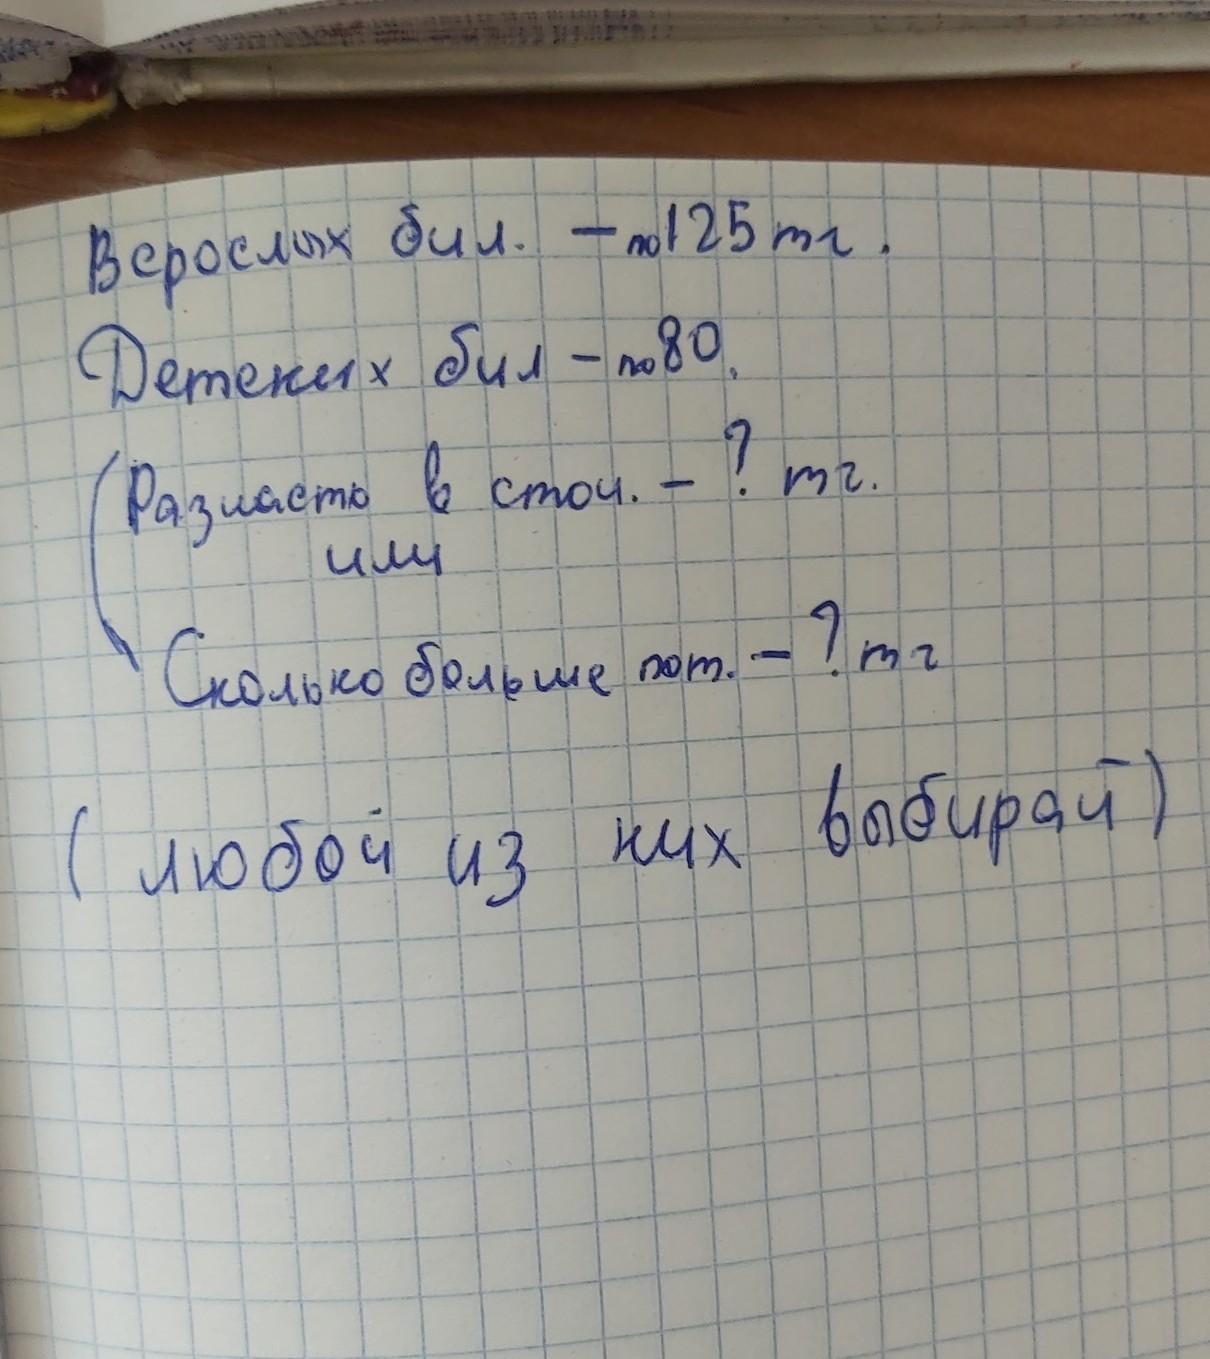 Всрослых бил. - по 125 тг.
Детских бил - по 80.
(Разность в стои. - ? тг.
или
Сколько больше пот. - ? тг
(любой из них выбирай)